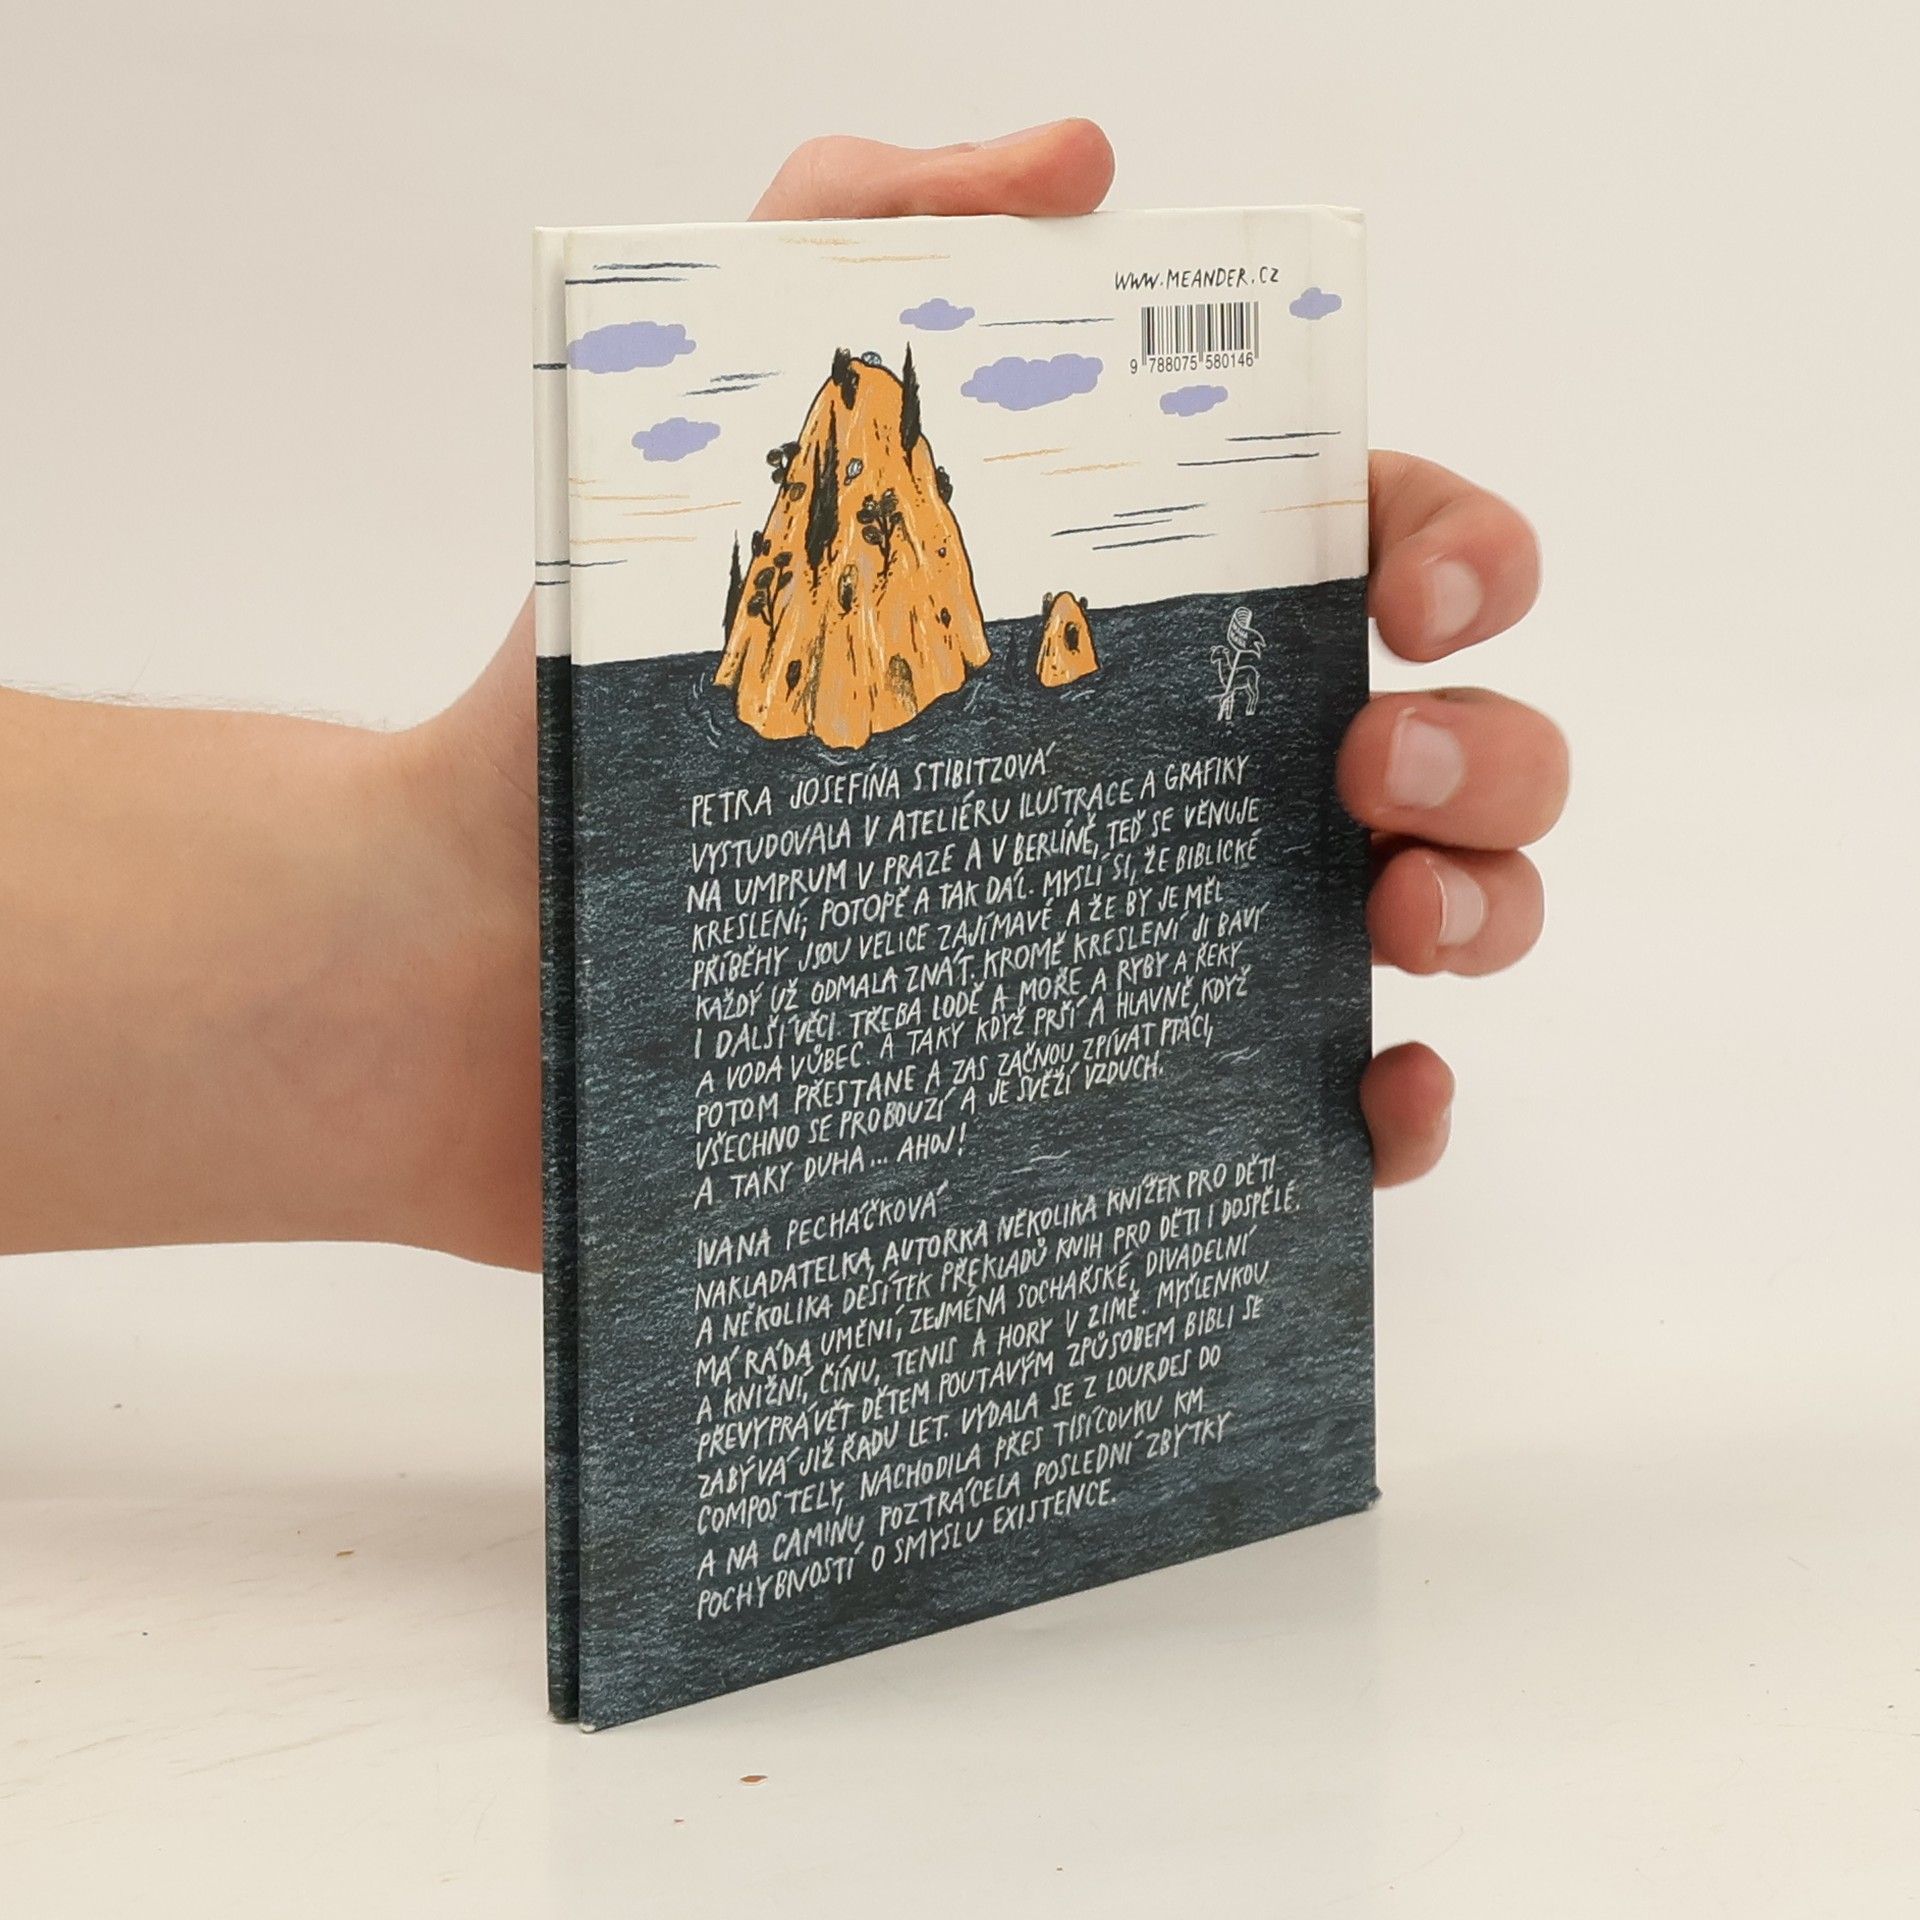 WWW.MEANDER.CZ
9 788075 580146
PETRA JOSEFÍNA STIBITZOVÁ
VYSTUDOVALA V ATELIÉRU ILUSTRACE A GRAFIKY
NA UMPRUM V PRAZE A V BERLÍNĚ, TEĎ SE VĚNUJE
KRESLENÍ, POTOPĚ A TAK DÁL. MYSLÍ SI, ŽE BIBLICKÉ
PŘÍBĚHY JSOU VELICE ZAJÍMAVÉ A ŽE BY JE MĚL
KAŽDÝ UŽ ODMALA ZNÁT. KROMĚ KRESLENÍ JI BAVÍ
I DALŠÍ VĚCI. TŘEBA LODĚ A MOŘE A RYBY A ŘEKY
A VODA VŮBEC. A TAKY KDYŽ PRŠÍ A HLAVNĚ, KDYŽ
POTOM PŘESTANE A ZAS ZAČNOU ZPÍVAT PTÁCI,
VŠECHNO SE PROBOUZÍ A JE SVĚŽÍ VZDUCH.
A TAKY DUHA... AHOJ!
IVANA PECHÁČKOVÁ
NAKLADATELKA, AUTORKA NĚKOLIKA KNÍŽEK PRO DĚTI
A NĚKOLIKA DESÍTEK PŘEKLADŮ KNIH PRO DĚTI I DOSPĚLÉ.
MÁ RÁDA UMĚNÍ, ZEJMÉNA SOCHAŘSKÉ, DIVADELNÍ
A KNIŽNÍ, ČÍNU, TENIS A HORY V ZIMĚ. MYŠLENKOU
PŘEVYPRÁVĚT DĚTEM POUTAVÝM ZPŮSOBEM BIBLI SE
ZABÝVÁ JIŽ ŘADU LET. VYDALA SE Z LOURDES DO
COMPOSTELY, NACHODILA PŘES TISÍCOVKU KM
A NA CAMINU POZTRÁCELA POSLEDNÍ ZBYTKY
POCHYBNOSTÍ O SMYSLU EXISTENCE.